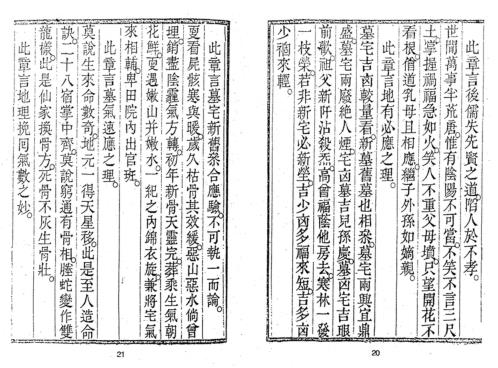 此章言後儒失先賢之道。陷人於不孝。
世間萬事半荒唐。惟有陰陽不可當。不笑不言三尺
土。掌握禍福急如火。笑人不重父母墳。只望開花不
看根。偕道乳母且相應。繼子外孫如嫡親。
此章言地有必應之理。
墓宅吉凶較量看。新墓舊墓也相叅。墓宅兩興宜鼎
盛。墓宅兩廢絕人煙。宅凶墓吉兒孫慶。墓凶宅吉眼
前歡。祖父新阡沾殺炁。高曾福蔭他房去。寒林一發
一枝榮。若非新宅必新塋。吉少凶多福來短。吉多凶
少禍來輕。
20
此章言墓宅新舊叅合應驗。不可執一而論。
更看屍骸寒與暖。歲久枯骨其效緩。惡山惡水倘曾
埋。銷盡陰霾氣方轉。初年新骨天靈完。葬乘生氣朝
花鮮。更遇嫩山并嫩水。一紀之內錦衣旋。兼將宅氣
來相輔。卑田院內出官班。
此章言墓氣遠應之理。
莫說生來命數奇。地元一得天星移。此是至人造命
訣。二十八宿掌中齊。莫說窮通有骨相。螣蛇變作雙
龍樣。此是仙家換骨方。死骨不灰生骨壯。
此章言地理挽囘氣數之妙。
21